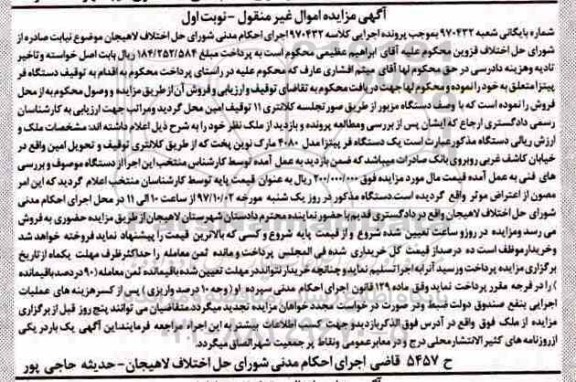 آگهی مزایده اموال غیر منقول - نوبت اول
شماره بایگانی شعبه ۹۷۰۴۳۲ بموجب پرونده اجرایی کلاسه ۹۷۰۴۳۲ اجرای احکام مدنی شورای حل اختلاف لاهیجان موضوع نیابت صادره از
شورای حل اختلاف قزوین محکوم علیه آقای ابراهیم عظیمی محکوم است به پرداخت مبلغ ۱۸۴/۲۵۲/۵۸۴ ریال بابت اصل خواسته و تاخیر
تادیه و هزینه دادرسی در حق محکوم لها آقای میثم افشاری عارف که محکوم علیه در راستای پرداخت محکوم به اقدام به توقیف دستگاه فر
پیتزا متعلق به خود را نموده و محکوم لها جهت دریافت محکوم به تقاضای توقیف و ارزیابی و فروش آن از طریق مزایده و وصول محکوم به از محل
فروش را نموده است که با وصف دستگاه مزبور از طریق صور تجلسه کلانتری ۱۱ توقیف امین محل گردید و مراتب جهت ارزیابی به کارشناسان
رسمی دادگستری ارجاع که ایشان پس از بررسی و مطالعه پرونده و بازدید از ملک نظر خود را به شرح ذیل اعلام داشته اند: مشخصات ملک و
ارزش ریالی دستگاه مذکور عبارت است یک دستگاه فر پیتزا مدل ۴۰۸۰ مارک نوین پخت که از طریق کلانتری توقیف و تحویل امین واقع در
خیابان کاشف غربی روبروی بانک صادرات میباشد که ضمن بازدید به عمل آمده توسط کارشناس منتخب این اجرا از دستگاه موصوف و بررسی
های فنی به عمل آمده قیمت مال مورد مزایده فوق ۲۰۰/۰۰۰/۰۰۰ ریال به عنوان قیمت پایه توسط کارشناسان منتخب اعلام گردید که این امر
مصون از اعتراض موثر واقع گردیده است دستگاه مذکور در روز یک شنبه مورخه ۹۷/۱۰/۰۲ از ساعت ۱۰ الی ۱۱ در محل اجرای احکام مدنی
شورای حل اختلاف لاهیجان واقع در دادگستری قدیم با حضور نماینده محترم دادستان شهرستان لاهیجان از طریق مزایده حضوری به فروش
می رسد و مزایده در روز و ساعت تعیین شده شروع و از قیمت پایه شروع و کسی که بالاترین قیمت را پیشنهاد نماید فروخته خواهد شد
و خریدار موظف است ده درصد از قیمت کل خریداری شده فی المجلس پرداخت و مانده ثمن معامله را حداکثر ظرف مهلت یکماه از تاریخ
برگزاری مزایده پرداخت و رسید آنرا به اجرا تسلیم نماید و چنانچه خریدار نتواند در مهلت تعیین شده باقیمانده ثمن معامله (۹۰ درصد باقیمانده
) را در فرجه مقرر پرداخت نماید وفق ماده ۱۲۹ قانون اجرای احکام مدنی سپرده او (وجه ۱۰ درصد واریزی) پس از کسر هزینه های عملیات
اجرایی بنفع صندوق دولت ضبط و در صورت در خواست مجدد خواهان مزایده تجدید میگردد. متقاضیان می توانند پنج روز قبل از برگزاری
مزایده از ملک فوق واقع در آدرس فوق الذکر بازدید و جهت کسب اطلاعات بیشتر به این اجراء مراجعه فرمایند. این آگهی یک بار در یکی
از روزنامه های کثیر الانتشار محلی درج و در معابر عمومی و نقاط پر جمعیت شهر الصاق میگردد.
ح ۵۴۵۷ قاضی اجرای احکام مدنی شورای حل اختلاف لاهیجان - حدیثه حاجی پور